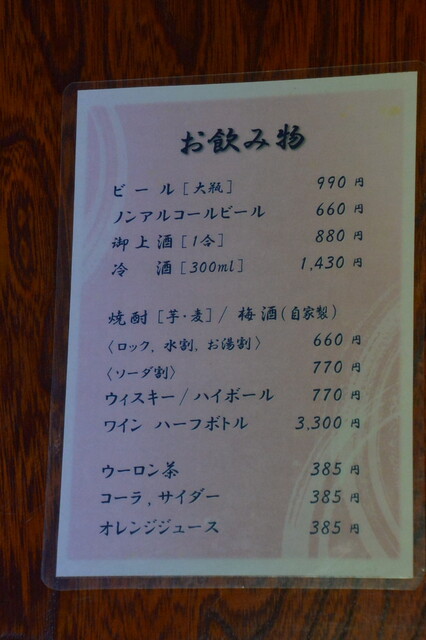 お飲み物
ビール［大瓶］ 990 円
ノンアルコールビール 660 円
御上酒［1合］ 880 円
冷 酒［300ml］ 1,430 円
焼酎［芋・麦］/ 梅酒(自家製)
〈ロック, 水割, お湯割〉 660 円
〈ソーダ割〉 770 円
ウィスキー/ハイボール 770 円
ワイン ハーフボトル 3,300 円
ウーロン茶 385 円
コーラ, サイダー 385 円
オレンジジュース 385 円